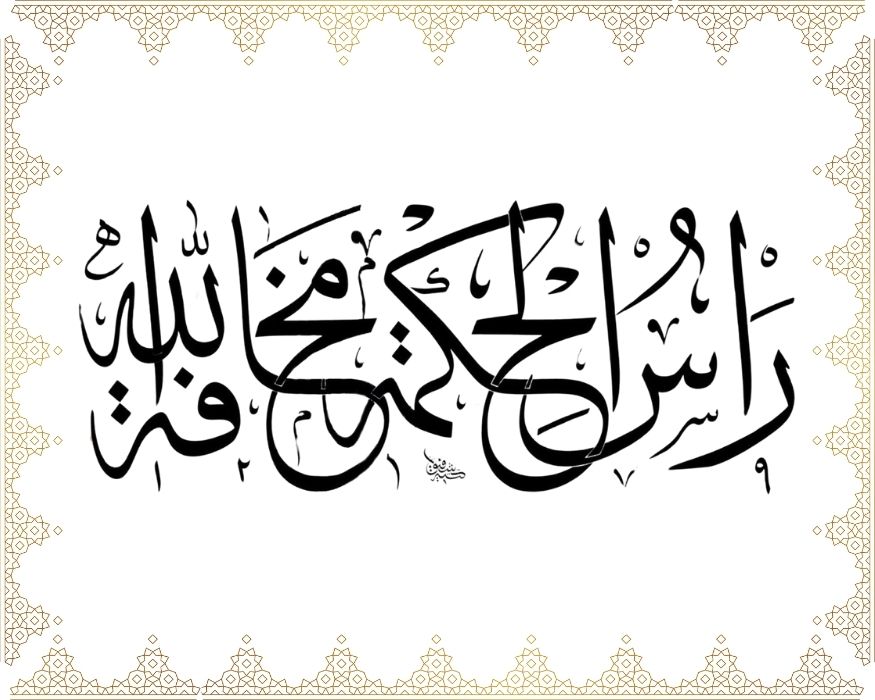 رَأسُ الْحِكْمَةِ مَخَافَةُ اللّٰهِ